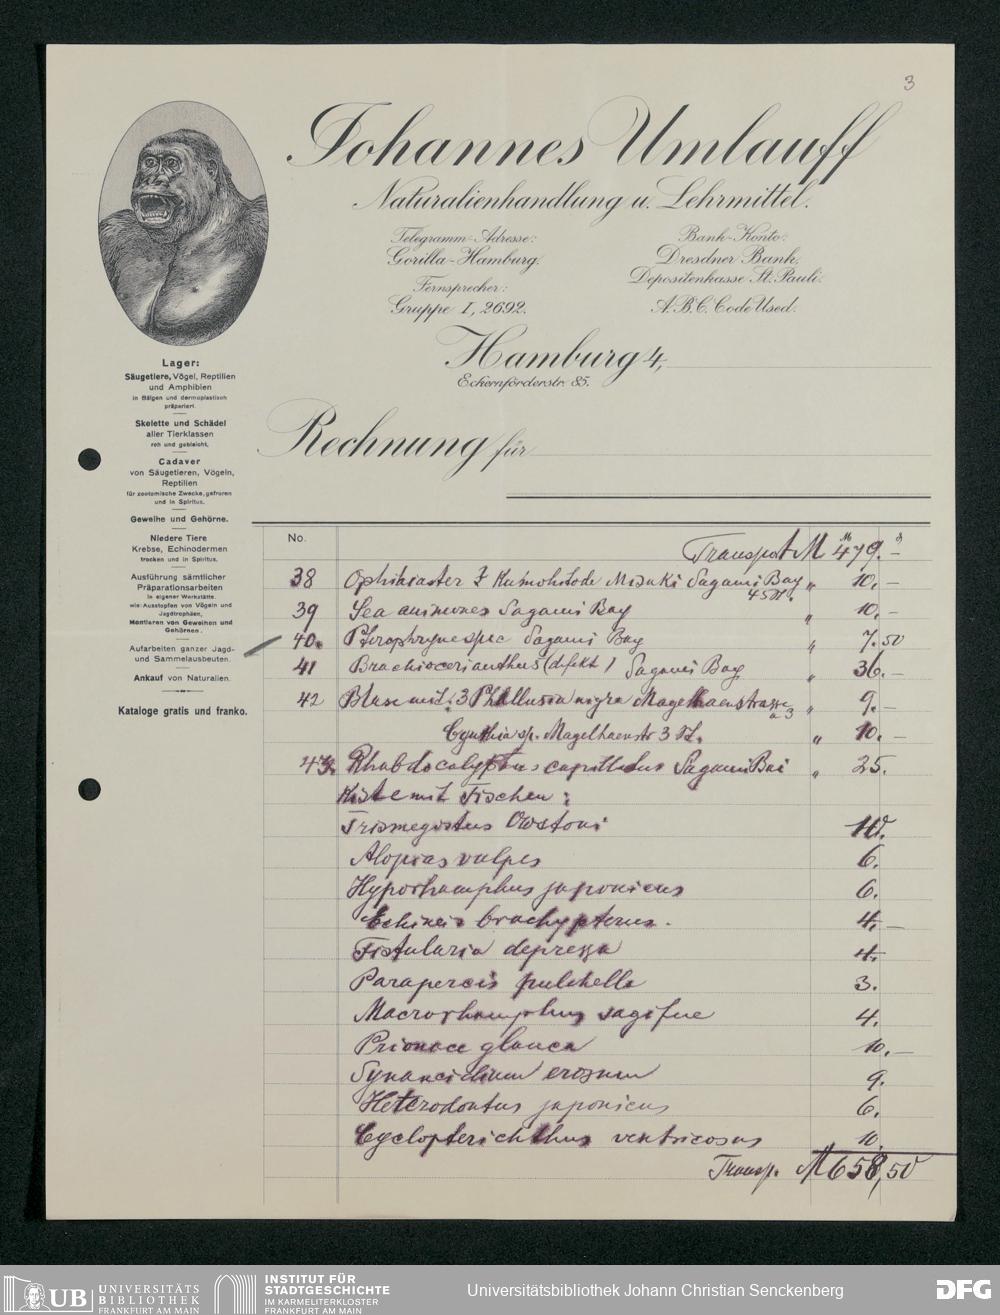 3
Johannes Umlauff
Naturalienhandlung u. Lehrmittel.
Telegramm-Adresse:
Gorilla-Hamburg.
Fernsprecher:
Gruppe I, 2692.
Bank-Konto:
Dresdner Bank.
Depositenkasse St. Pauli.
A.B.C. Code Used.
Hamburg 4,
Eckernförderstr. 85.
Rechnung für
Lager:
Säugetiere, Vögel, Reptilien
und Amphibien
in Bälgen und dermoplastisch
präpariert.
Skelette und Schädel
aller Tierklassen
roh und gebleicht.
Cadaver
von Säugetieren, Vögeln,
Reptilien
für zootomische Zwecke, gefroren
und in Spiritus.
Geweihe und Gehörne.
Niedere Tiere
Krebse, Echinodermen
trocken und in Spiritus.
Ausführung sämtlicher
Präparationsarbeiten
in eigener Werkstätte.
wie: Ausstopfen von Vögeln und
Jagdtrophäen,
Montieren von Geweihen und
Gehörnen.
Aufarbeiten ganzer Jagd-
und Sammelausbeuten.
Ankauf von Naturalien.
Kataloge gratis und franko.
No.
Transport M 479.–
38 Ophiaraster Misaki Sagami Bay " 10.–
39 Sea animones Sagami Bay " 10.–
40. Pterophryne spec Sagami Bay " 7.50
41 Brachiocerianthus (defekt) Sagami Bay " 36.–
42 Blase mit: 3 Phallusia nigra Magelhaenstrasse a 3 " 9.–
Cynthia sp. Magelhaenstr 3 St. " 10.–
43. Rhabdocalyptus capillatus Sagami Bai " 25.
Kiste mit Fischen:
Trismegistus Owstoni 10.
Alopias vulpes 6.
Hyporhamphus japonicus 6.
Echineis brachypterus. 4.–
Fistularia depressa 4.
Parapercis pulchella 3.
Macrorhamphus sagifue 4.
Prionace glauca 10.–
Synancidium erosum 9.
Heterodontus japonicus 6.
Cyclopterichthus ventricosus 10
Transp. M 658,50
UB UNIVERSITÄTS
BIBLIOTHEK
FRANKFURT AM MAIN
INSTITUT FÜR
STADTGESCHICHTE
IM KARMELITERKLOSTER
FRANKFURT AM MAIN
Universitätsbibliothek Johann Christian Senckenberg
DFG